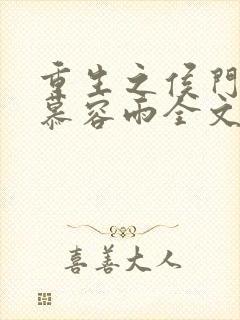 重生之侯门
慕容雨全文
喜善大人